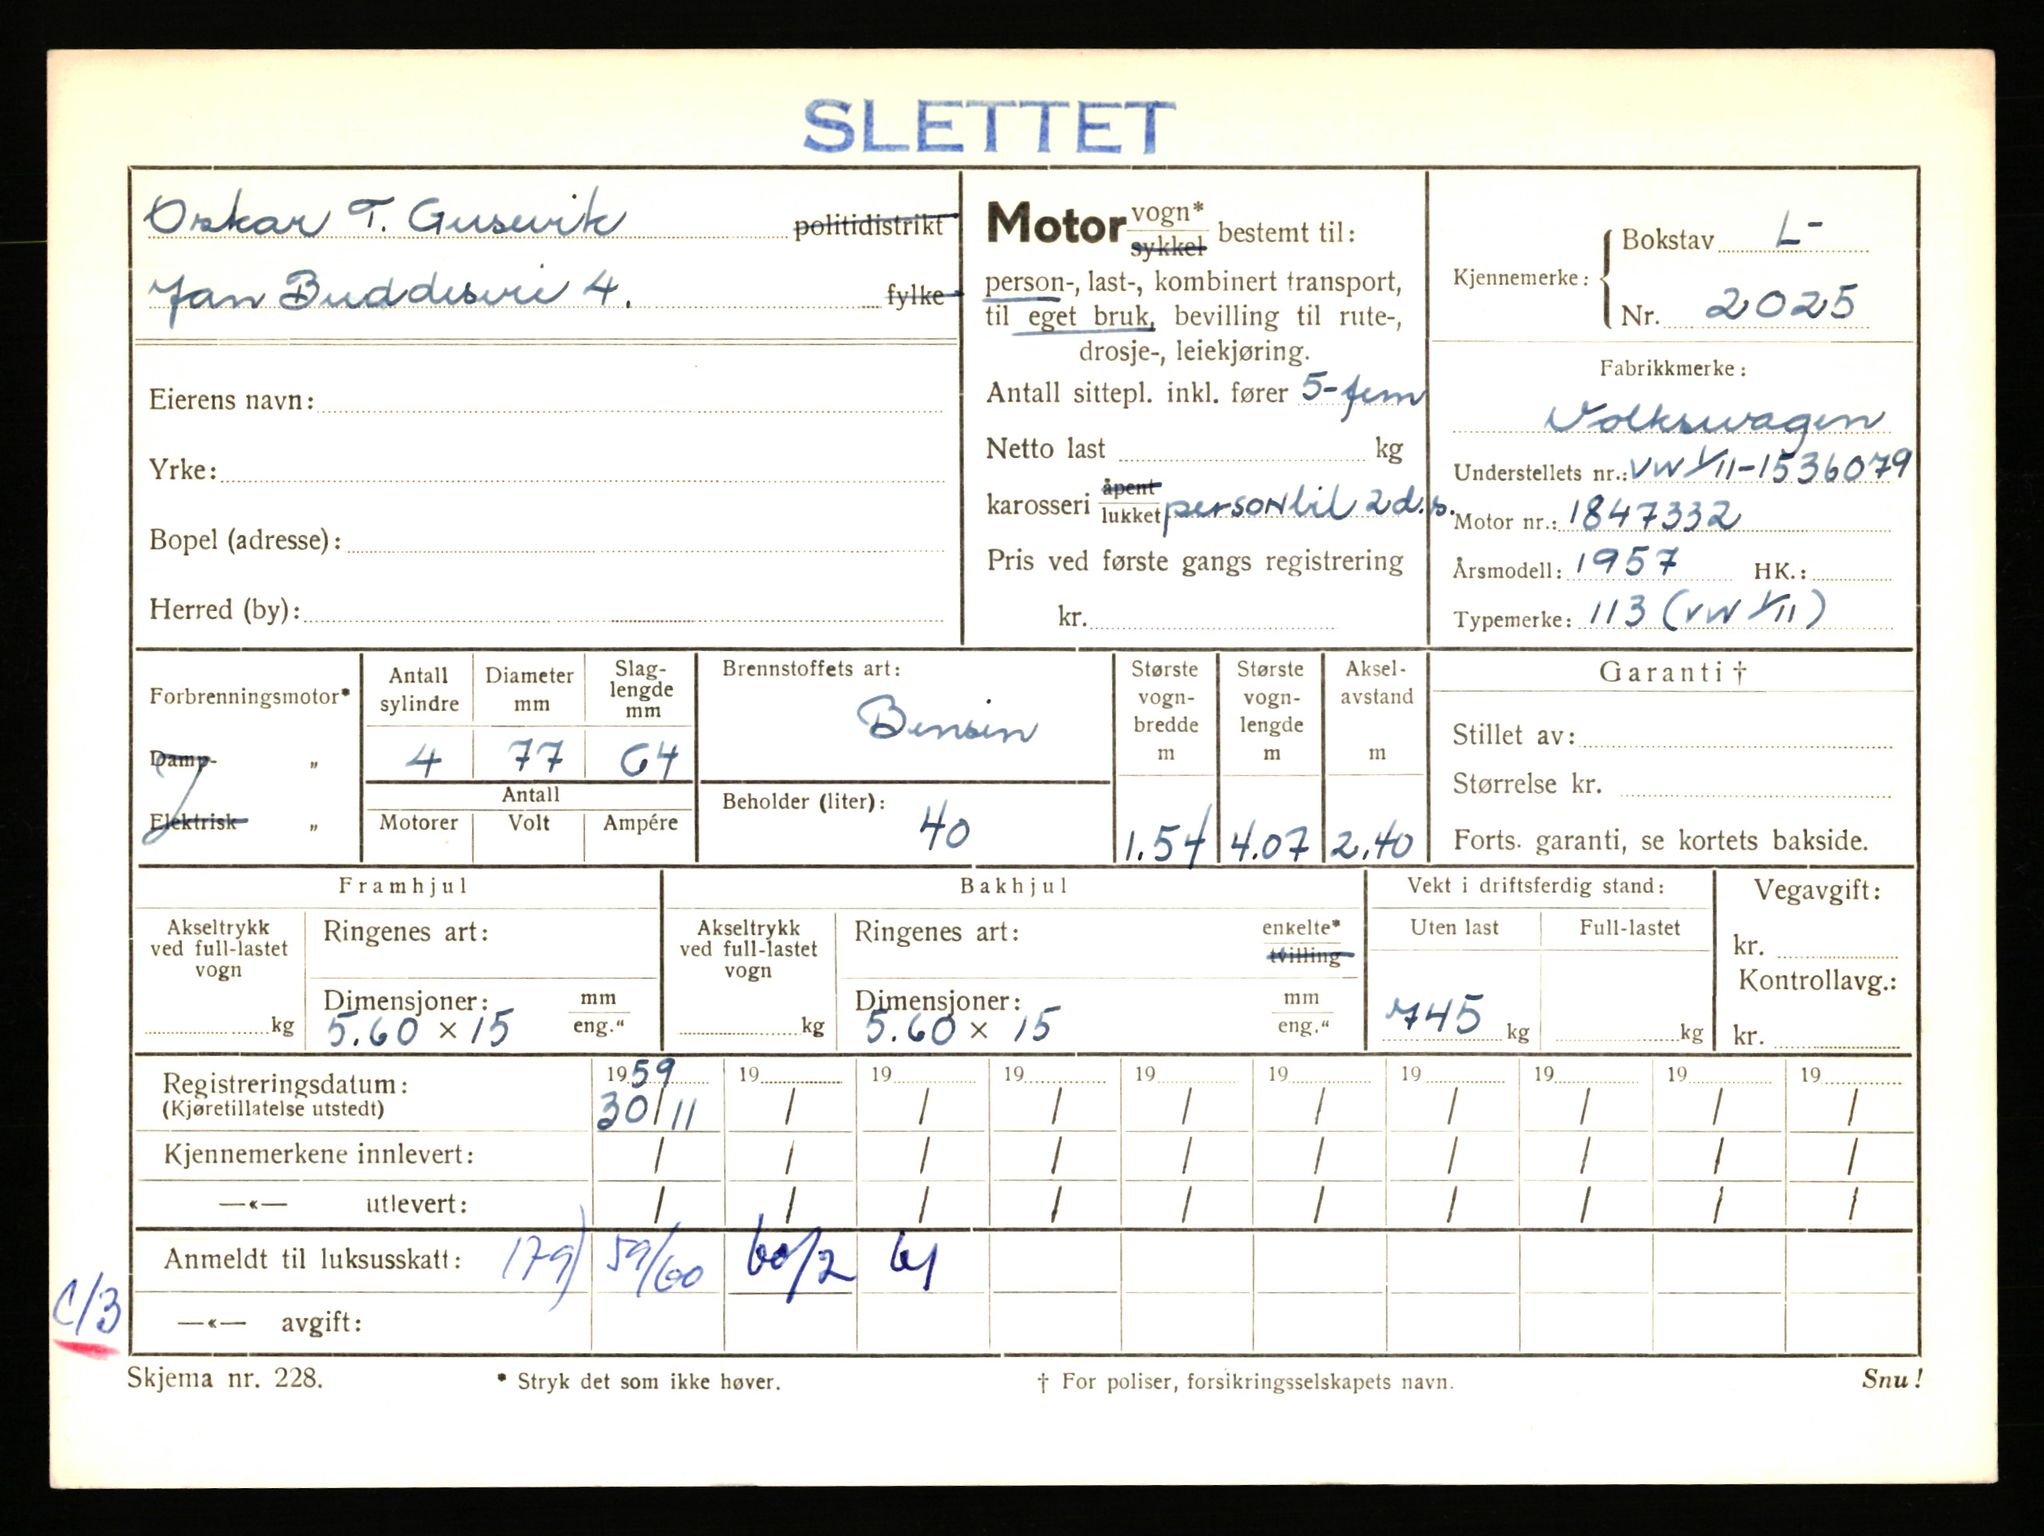 SLETTET
Oskar T. Gusevik politidistrikt
Jan Buddesvei 4. fylke
Eierens navn:
Yrke:
Bopel (adresse):
Herred (by):
Motor vogn* sykkel bestemt til:
person-, last-, kombinert transport,
til eget bruk, bevilling til rute-,
drosje-, leiekjøring.
Antall sittepl. inkl. fører 5-fem
Netto last kg
karosseri åpent lukket personbil 2 d.s.
Pris ved første gangs registrering
kr.
Kjennemerke: Bokstav L-
Nr. 2025
Fabrikkmerke:
Volkswagen
Understellets nr.: VW 1/11-1536079
Motor nr.: 1847332
Årsmodell: 1957 HK.:
Typemerke: 113 (VW 1/11)
Forbrenningsmotor*
Damp- "
Elektrisk "
Antall sylindre
4
Diameter mm
77
Slag-
lengde
mm
64
Antall
Motorer Volt Ampére
Brennstoffets art:
Bensin
Beholder (liter):
40
Største
vogn-
bredde
m
1.54
Største
vogn-
lengde
m
4.07
Aksel-
avstand
m
2.40
Garanti †
Stillet av:
Størrelse kr.
Forts. garanti, se kortets bakside.
Framhjul
Akseltrykk
ved full-lastet
vogn
kg
Ringenes art:
Dimensjoner: mm eng."
5.60 × 15
Bakhjul
Akseltrykk
ved full-lastet
vogn
kg
Ringenes art: enkelte* tvilling
Dimensjoner: mm eng."
5.60 × 15
Vekt i driftsferdig stand:
Uten last Full-lastet
745 kg kg
Vegavgift:
kr.
Kontrollavg.:
kr.
Registreringsdatum: 1959 19 19 19 19 19 19 19 19 19
(Kjøretillatelse utstedt) 30/11 / / / / / / / / /
Kjennemerkene innlevert: / / / / / / / / / /
—«— utlevert: / / / / / / / / / /
Anmeldt til luksusskatt: 179) 59/60 60/2 61
C/3
—«— avgift:
Skjema nr. 228. * Stryk det som ikke høver. † For poliser, forsikringsselskapets navn. Snu!